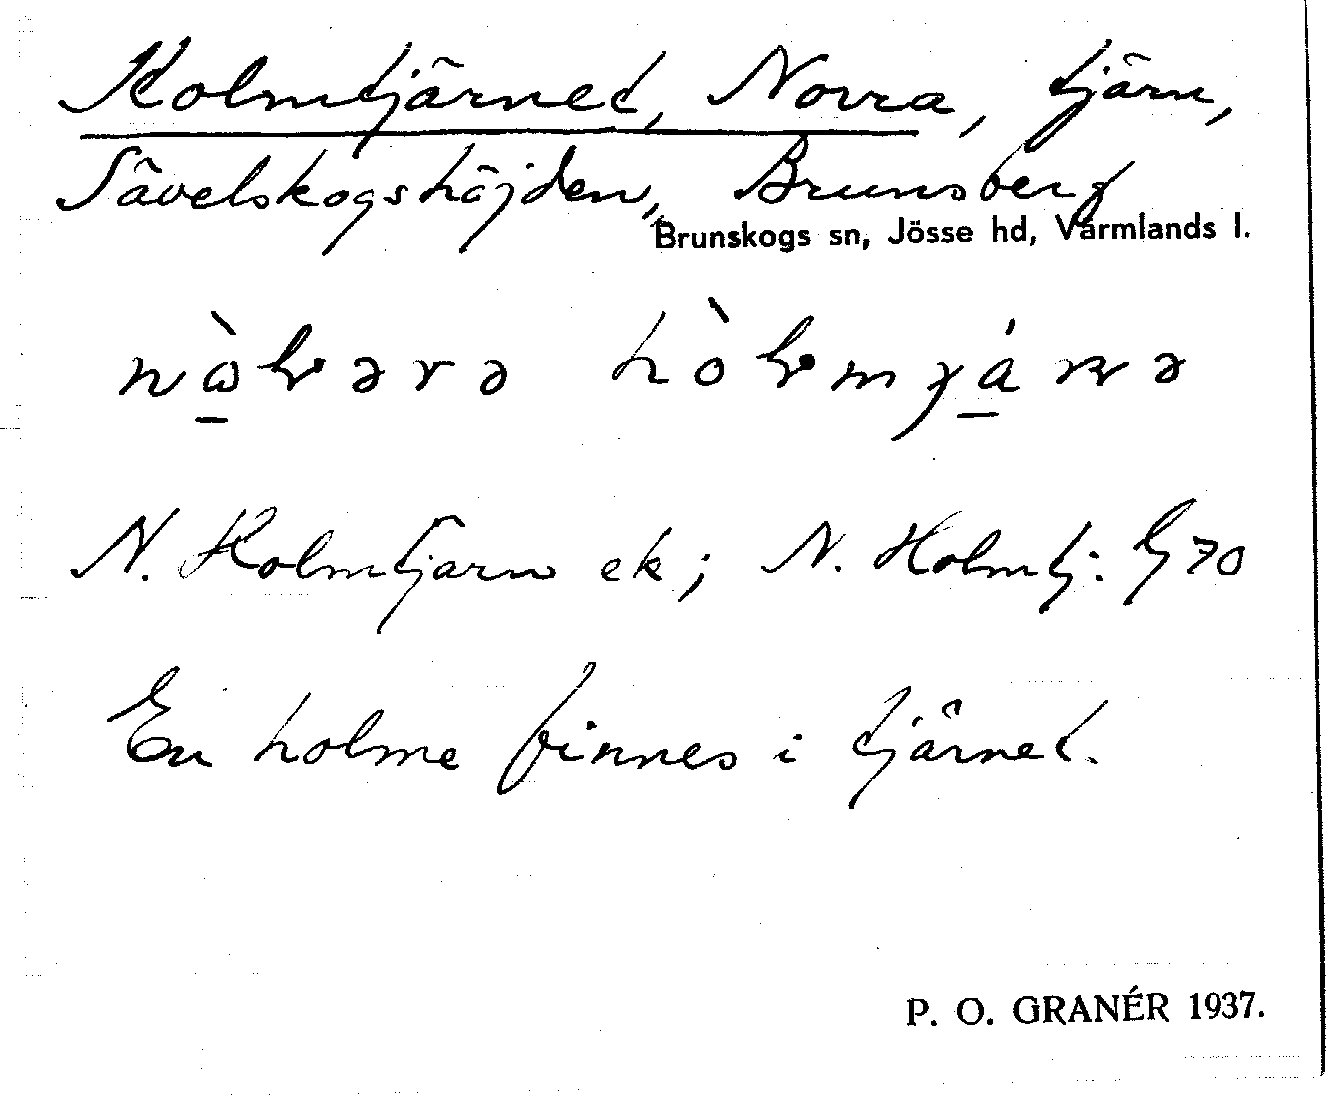 Holmtjärnet, Norra, tjärn,
Sävelskogshöjden, Brunsberg
Brunskogs sn, Jösse hd, Värmlands l.
N. Holmtjärn ek; N. Holmtj. G 70
En holme finnes i tjärnet.
P. O. GRANÉR 1937.